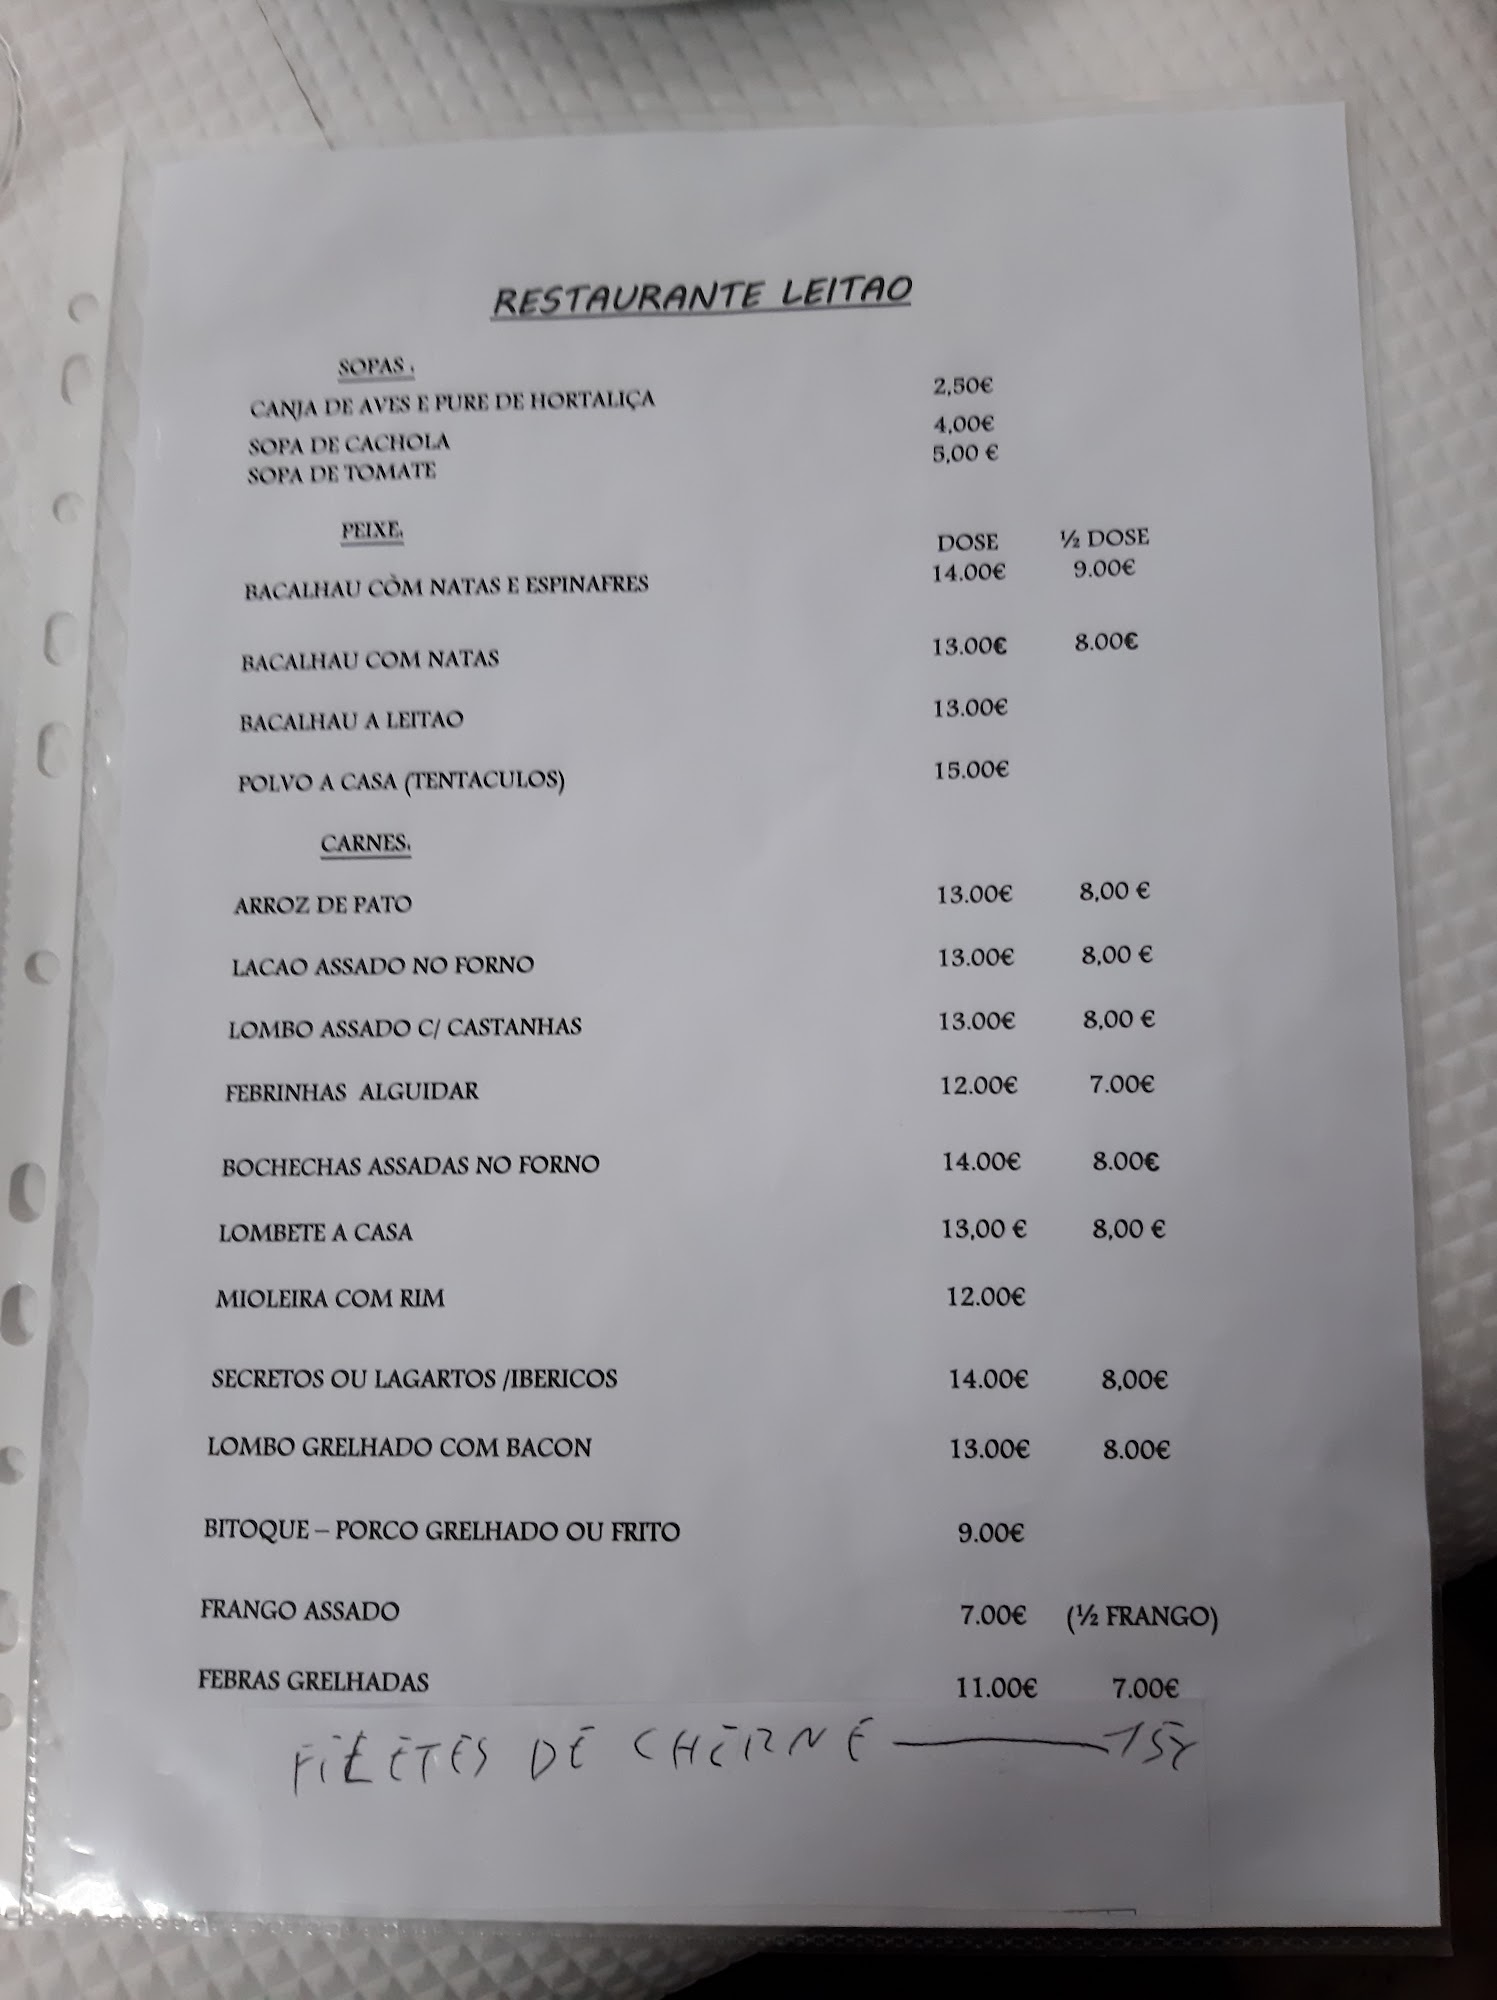 RESTAURANTE LEITAO
SOPAS.
CANJA DE AVES E PURE DE HORTALIÇA 2,50€
SOPA DE CACHOLA 4,00€
SOPA DE TOMATE 5,00 €
PEIXE. DOSE ½ DOSE
BACALHAU CÒM NATAS E ESPINAFRES 14.00€ 9.00€
BACALHAU COM NATAS 13.00€ 8.00€
BACALHAU A LEITAO 13.00€
POLVO A CASA (TENTACULOS) 15.00€
CARNES.
ARROZ DE PATO 13.00€ 8,00 €
LACAO ASSADO NO FORNO 13.00€ 8,00 €
LOMBO ASSADO C/ CASTANHAS 13.00€ 8,00 €
FEBRINHAS ALGUIDAR 12.00€ 7.00€
BOCHECHAS ASSADAS NO FORNO 14.00€ 8.00€
LOMBETE A CASA 13,00 € 8,00 €
MIOLEIRA COM RIM 12.00€
SECRETOS OU LAGARTOS /IBERICOS 14.00€ 8,00€
LOMBO GRELHADO COM BACON 13.00€ 8.00€
BITOQUE – PORCO GRELHADO OU FRITO 9.00€
FRANGO ASSADO 7.00€ (½ FRANGO)
FEBRAS GRELHADAS 11.00€ 7.00€
FILETES DE CHERNE — 15€